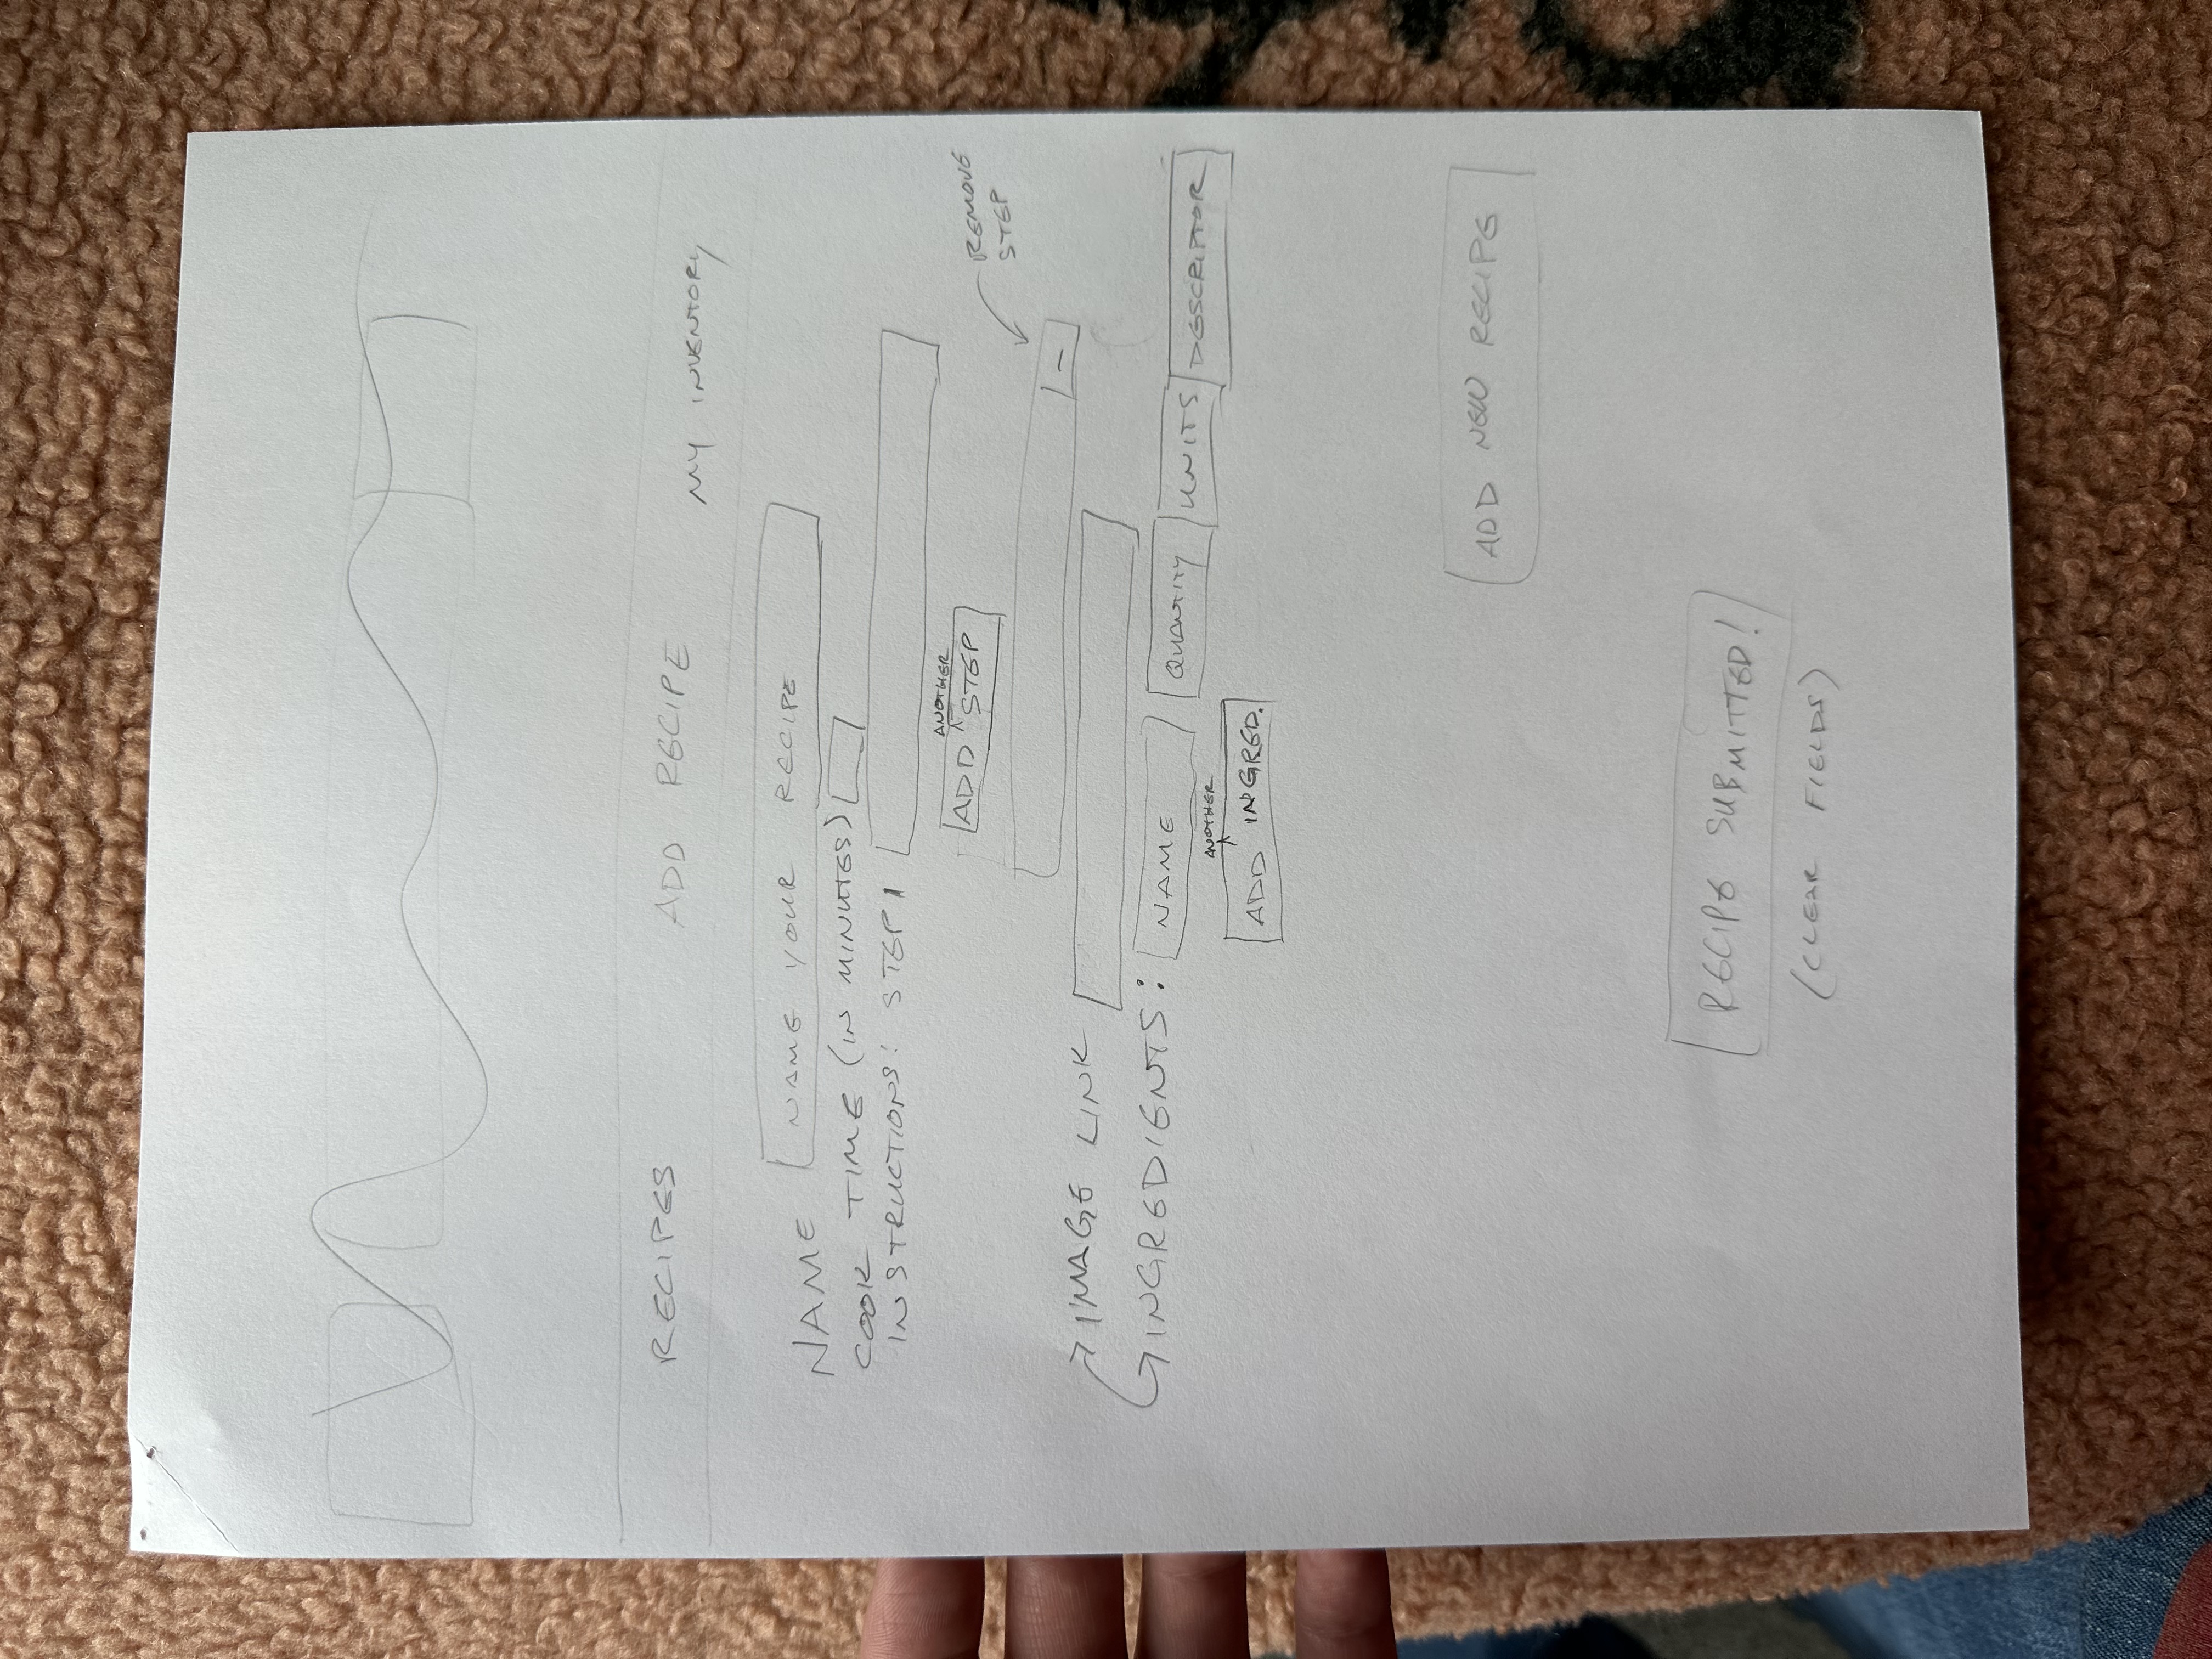 RECIPES ADD RECIPE MY INVENTORY
NAME NAME YOUR RECIPE
COOK TIME (IN MINUTES)
INSTRUCTIONS: STEP 1
ANOTHER
ADD ^ STEP
REMOVE
STEP
-
IMAGE LINK
INGREDIENTS: NAME QUANTITY UNITS DESCRIPTOR
ANOTHER
ADD ^ INGRED.
ADD NEW RECIPE
RECIPE SUBMITTED!
(CLEAR FIELDS)